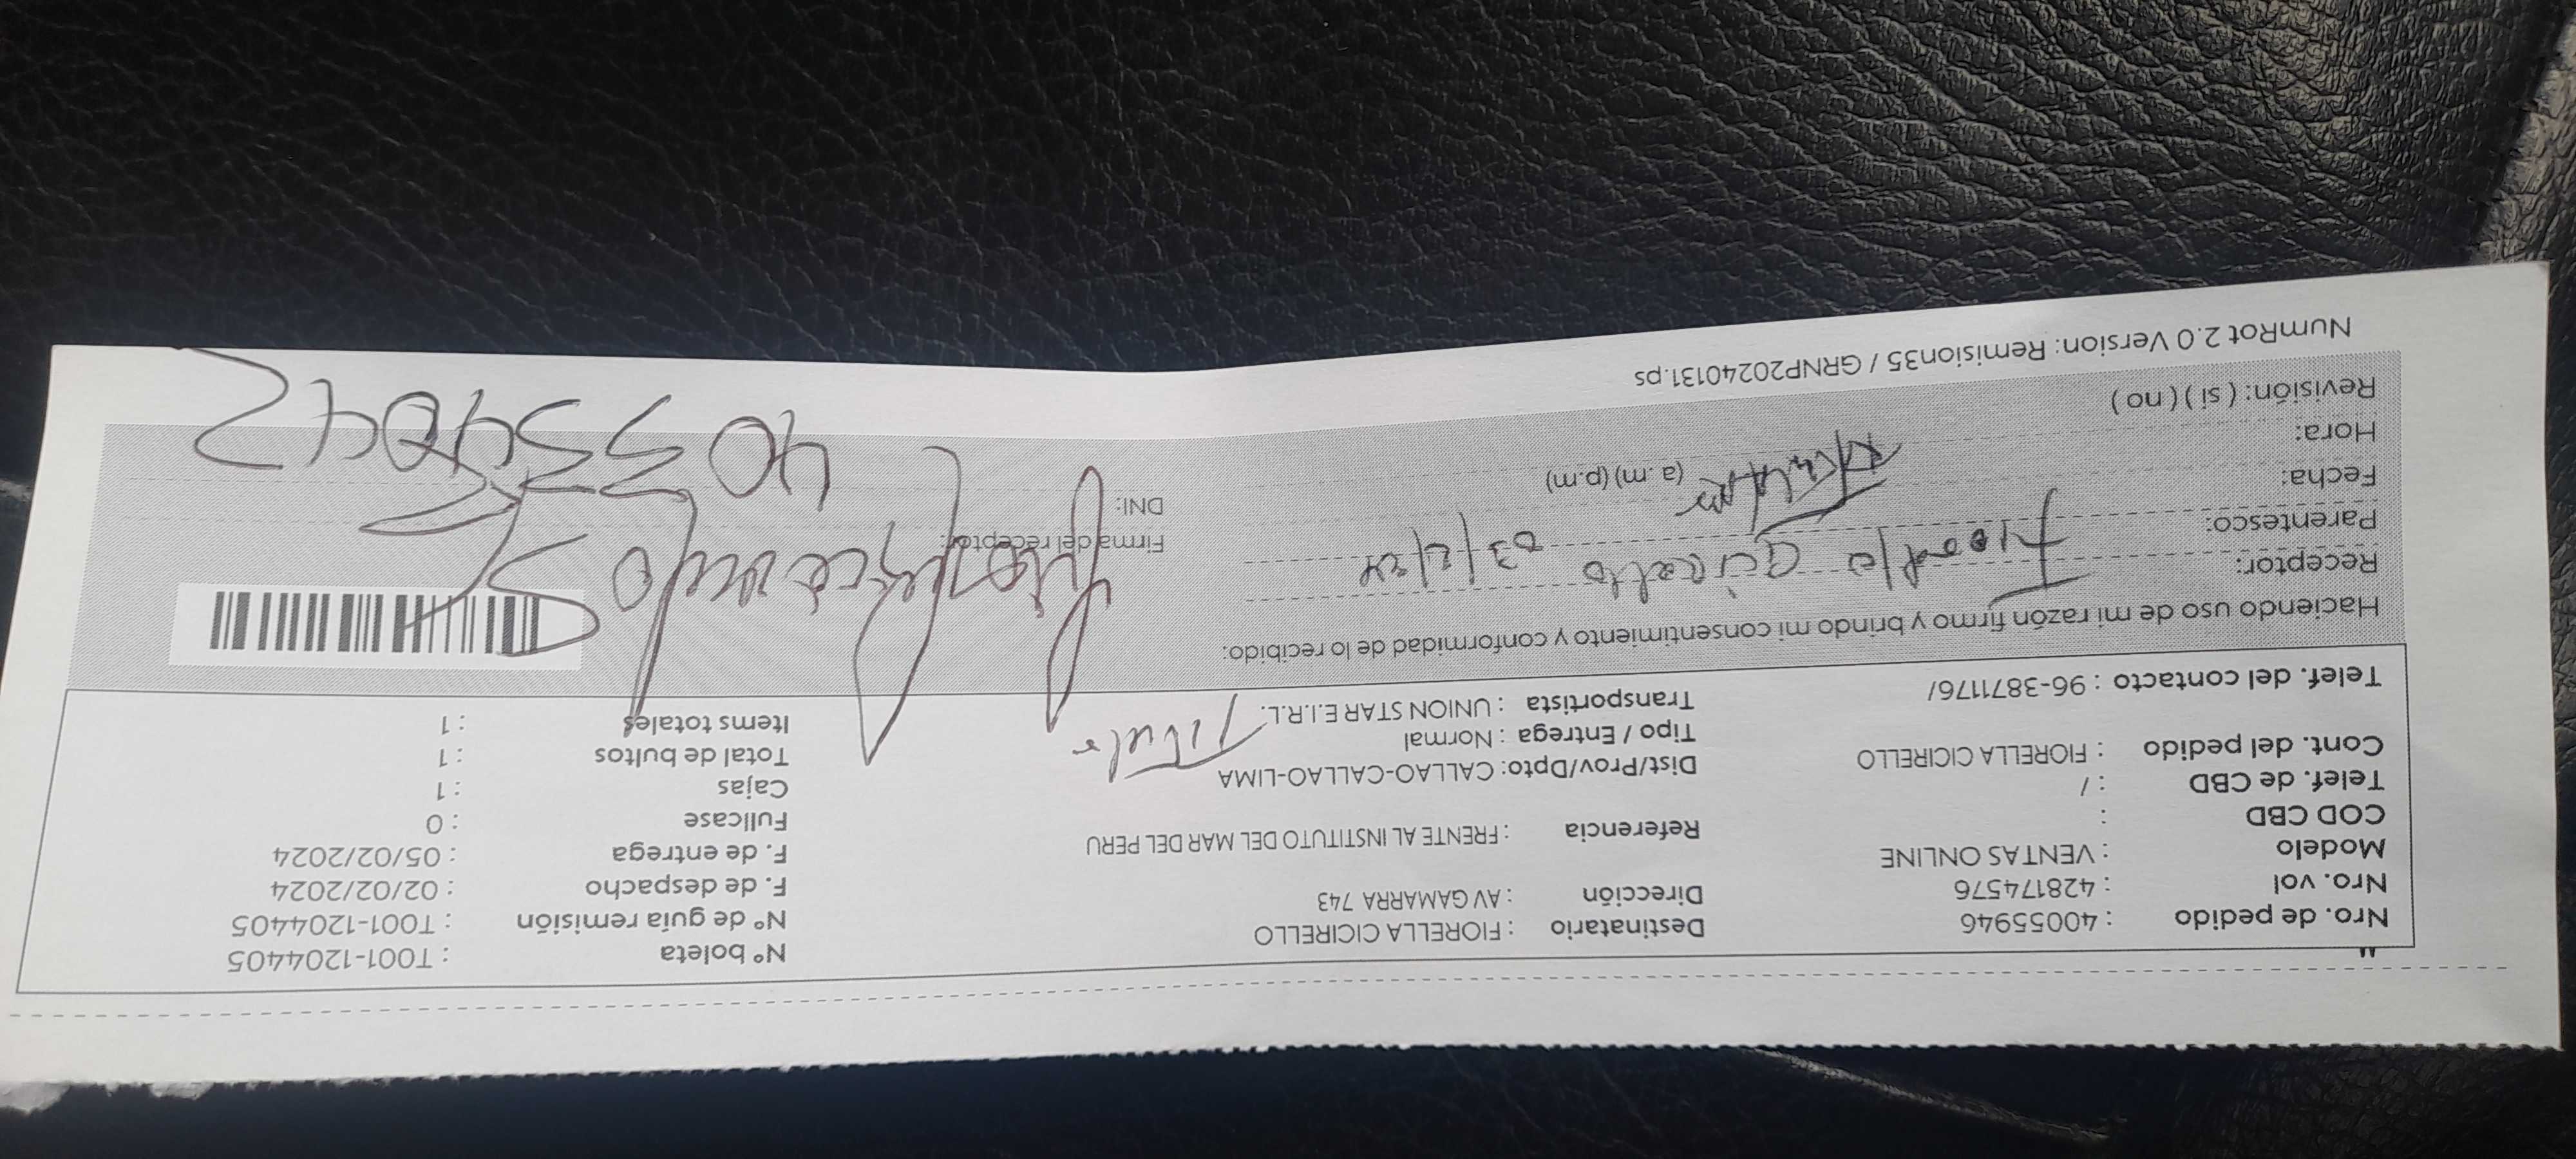 Nro. de pedido : 40055946
Nro. vol : 428174576
Modelo : VENTAS ONLINE
COD CBD :
Telef. de CBD : /
Cont. del pedido : FIORELLA CICIRELLO
Telef. del contacto : 96-3871176/
Destinatario : FIORELLA CICIRELLO
Dirección : AV GAMARRA 743
Referencia : FRENTE AL INSTITUTO DEL MAR DEL PERU
Dist/Prov/Dpto: CALLAO-CALLAO-LIMA
Tipo / Entrega : Normal
Transportista : UNION STAR E.I.R.L.
Titular
N° boleta : T001-1204405
N° de guía remisión : T001-1204405
F. de despacho : 02/02/2024
F. de entrega : 05/02/2024
Fullcase : 0
Cajas : 1
Total de bultos : 1
Items totales : 1
Haciendo uso de mi razón firmo y brindo mi consentimiento y conformidad de lo recibido:
Receptor:
Parentesco:
Fecha:
Hora: (a.m) (p.m)
Revisión: ( si ) ( no )
Firma del receptor:
DNI:
NumRot 2.0 Version: Remision35 / GRNP20240131.ps